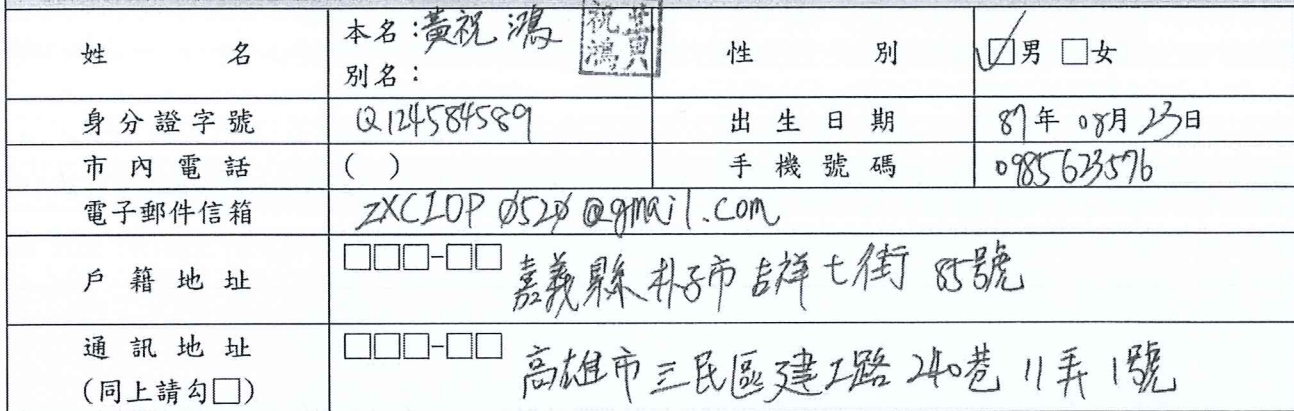 姓名 本名:黃祝鴻 性別 ☑男 □女
別名:
身分證字號 Q124584589 出生日期 87年08月23日
市內電話 ( ) 手機號碼 0985623576
電子郵件信箱 ZXCIOP0520@gmail.com
戶籍地址 □□□-□□ 嘉義縣朴子市吉祥七街85號
通訊地址 □□□-□□ 高雄市三民區建工路240巷11弄1號
(同上請勾□)
黃祝鴻